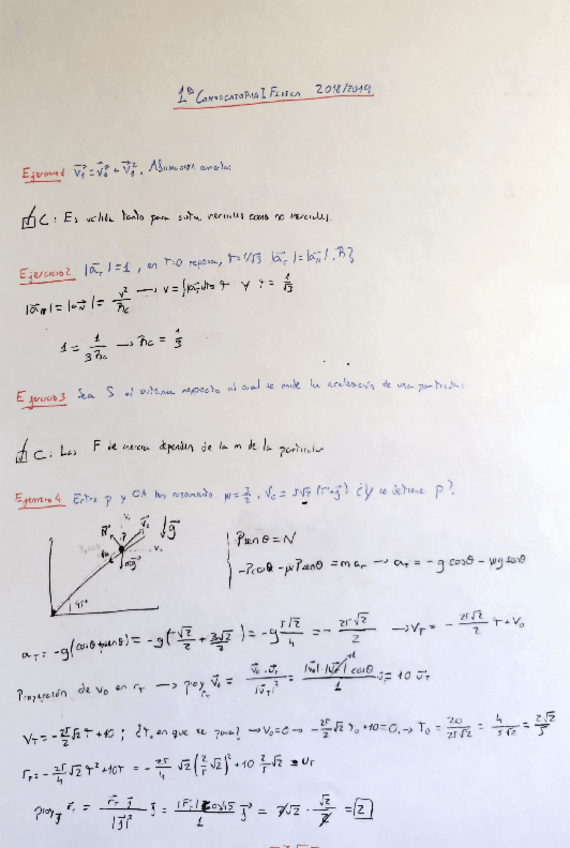 1ª CONVOCATORIA I FÍSICA 2018/2019
Ejercicio 1 Afirmación correcta:
C: Es válida tanto para sistemas inerciales como no inerciales.
Ejercicio 2 |a⃗_T| = 1, en t=0 reposo, t=1/√3 |a⃗_T| = |a⃗_N|.
|a⃗_N| = v²/R_c → v =
1 = 1/(3R_c) → R_c = 1/3
Ejercicio 3 Sea S el sistema respecto al cual se mide la aceleración de una partícula:
C: Las F de inercia dependen de la m de la partícula
Ejercicio 4 Entre p y OA hay rozamiento μ=3/2. V⃗₀ = 5√2 (i⃗+j⃗) ¿Y se detiene P?
N⃗ P V⃗₀ ↓g⃗
mg⃗
45°
P senθ = N
-P cosθ - μP senθ = m a_T → a_T = -g cosθ - μg senθ
a_T = -g(cosθ+μsenθ) = -g(√2/2 + 3√2/4) = -g 5√2/4 = - 25√2/2 → V_T = - 25√2/2 t + V₀
Proyección de v₀ en r_T → proy v⃗₀ = = 10 u⃗_T
V_T = -25/2 √2 t + 10; ¿t en que se para? → V=0 → -25/2 √2 t₀ + 10 = 0 → t₀ = 20/25√2 = 4/5√2 = 2√2/5
r_T = -25/4 √2 t² + 10t = -25/4 √2 (2/5 √2)² + 10 2/5 √2 =
proy_j r⃗ = = 2√2 · √2/2 = 2